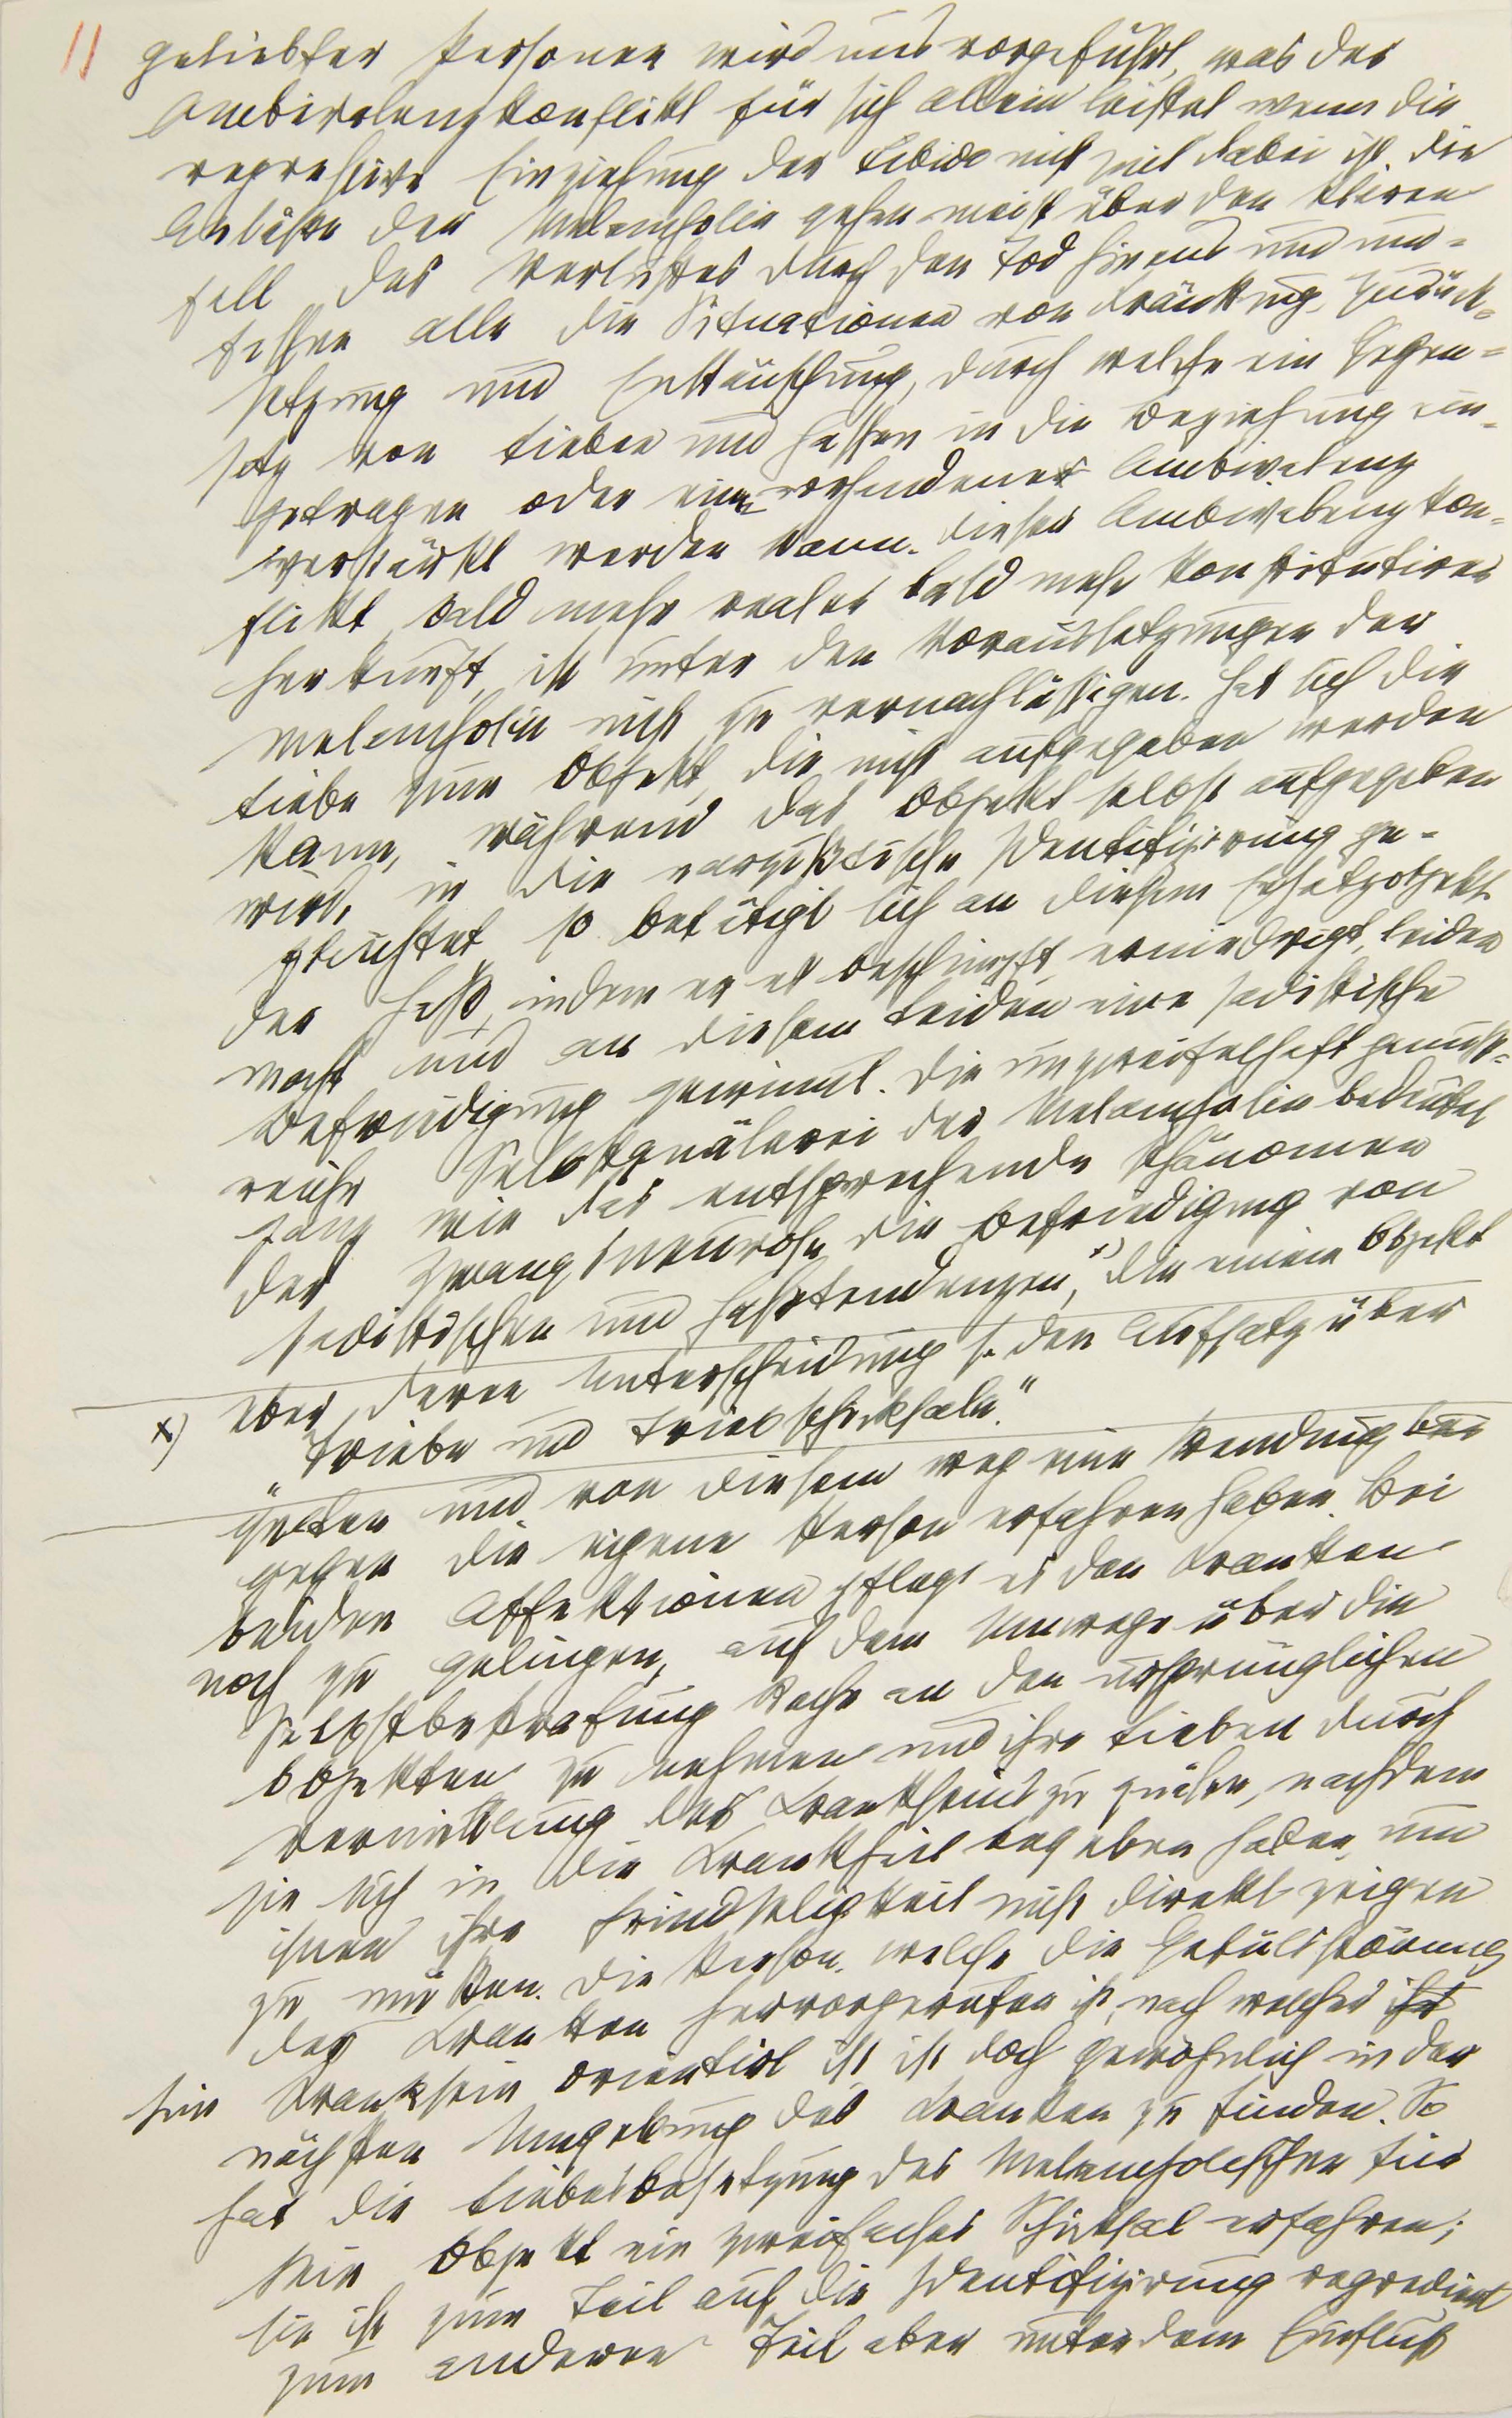 11 geliebter Personen wird uns vorgeführt, was der
Ambivalenzkonflikt für sich allein leistet wenn die
regressive Einziehung der Libido nicht mit dabei ist. Die
Anlässe der Melancholie gehen meist über den klaren
Fall des Verlustes durch den Tod hinaus und um=
fassen alle die Situationen von Kränkung, Zurück=
setzung und Enttäuschung, durch welche ein Gegen=
satz von Lieben und Hassen in die Beziehung ein=
getragen oder eine vorhandene Ambivalenz
verstärkt werden kann. Dieser Ambivalenzkon=
flikt, bald mehr realer bald mehr konstitutiver
Herkunft, ist unter den Voraussetzungen der
Melancholie nicht zu vernachlässigen. Hat sich die
Liebe zum Objekt, die nicht aufgegeben werden
kann, während das Objekt selbst aufgegeben
wird, in die narzißtische Identifizierung ge=
flüchtet, so betätigt sich an diesem Ersatzobjekt
der Haß, indem er es beschimpft, erniedrigt, leiden
macht und an diesem Leiden eine sadistische
Befriedigung gewinnt. Die unzweifelhaft genuß=
reiche Selbstquälerei der Melancholie bedeutet
ganz wie das entsprechende Phänomen
der Zwangsneurose die Befriedigung von
sadistischen und Haßtendenzen,x) die einem Objekt
x) Über deren Unterscheidung s. den Aufsatz über
„Triebe und Triebschicksale."
gelten und von diesem weg eine Wendung
gegen die eigene Person erfahren haben. Bei
beiden Affektionen pflegt es den Kranken
noch zu gelingen, auf dem Umwege über die
Selbstbestrafung Rache an den ursprünglichen
Objekten zu nehmen und ihre Lieben durch
Vermittlung des Krankseins zu quälen, nachdem
sie sich in die Krankheit begeben haben, um
ihnen ihre Feindseligkeit nicht direkt zeigen
zu müssen. Die Person, welche die Gefülsstörung
des Kranken hervorgerufen ist, nach welcher ihr
sein Kranksein orientirt ist, ist doch gewöhnlich in der
nächsten Umgebung des Kranken zu finden. So
hat die Liebesbesetzung des Melancholischen für
sein Objekt ein zweifaches Schicksal erfahren;
sie ist zum Teil auf die Identifizirung regredirt
zum anderen Teil aber unter dem Einfluß